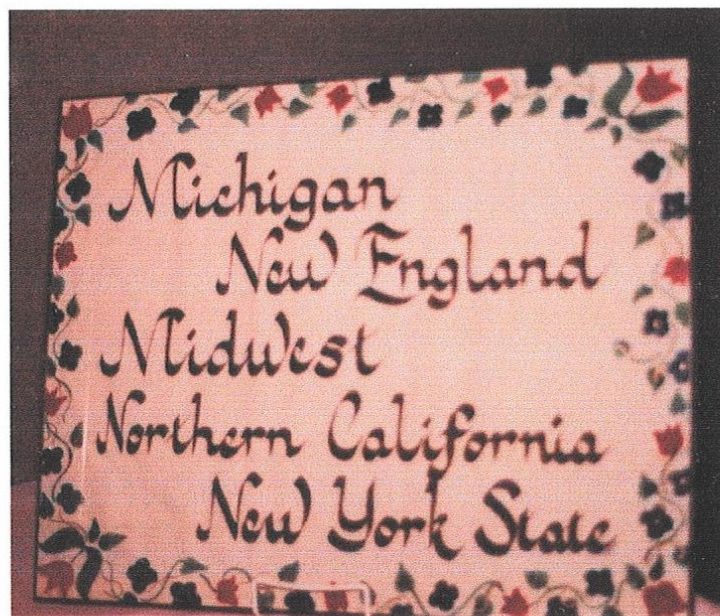 Michigan
New England
Midwest
Northern California
New York State